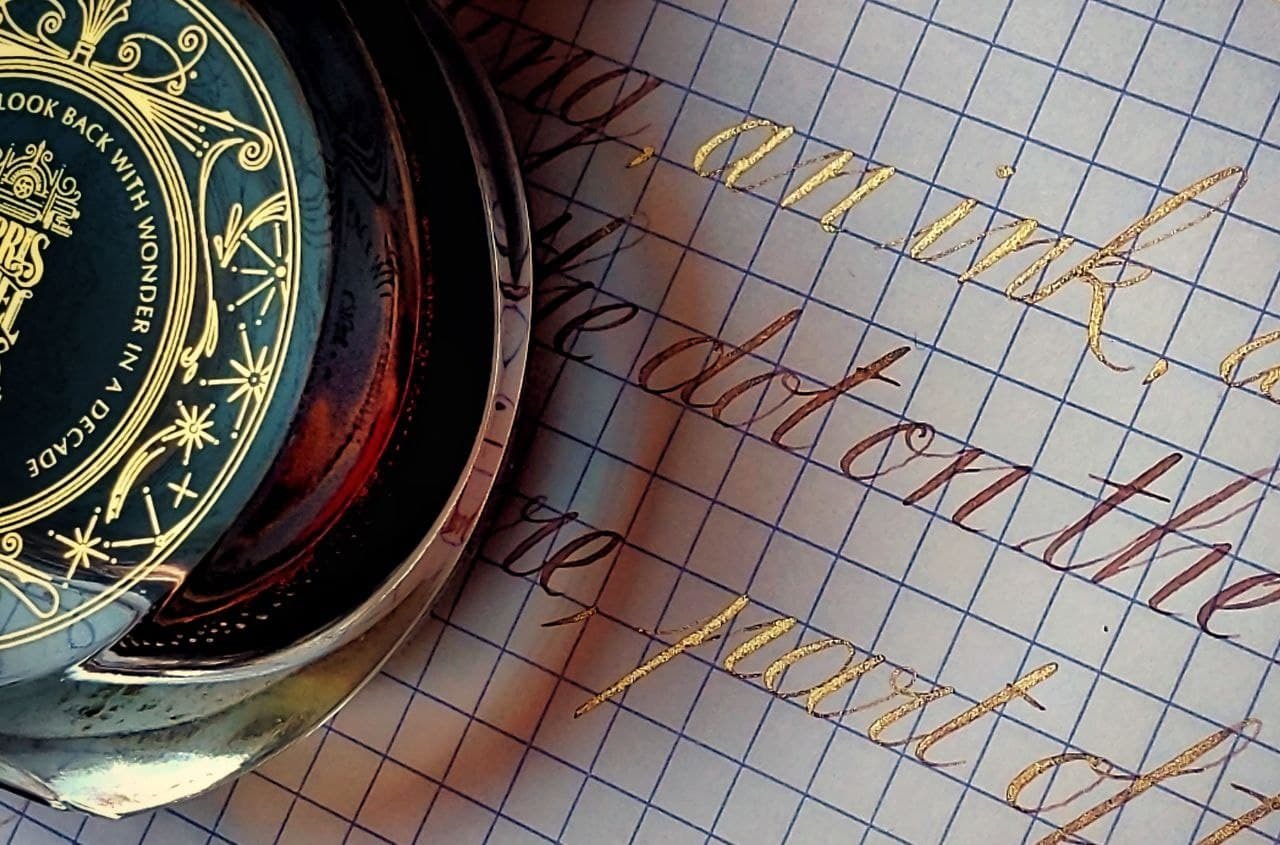 LOOK BACK WITH WONDER IN A DECADE
, an ink,
the dot on the
part of